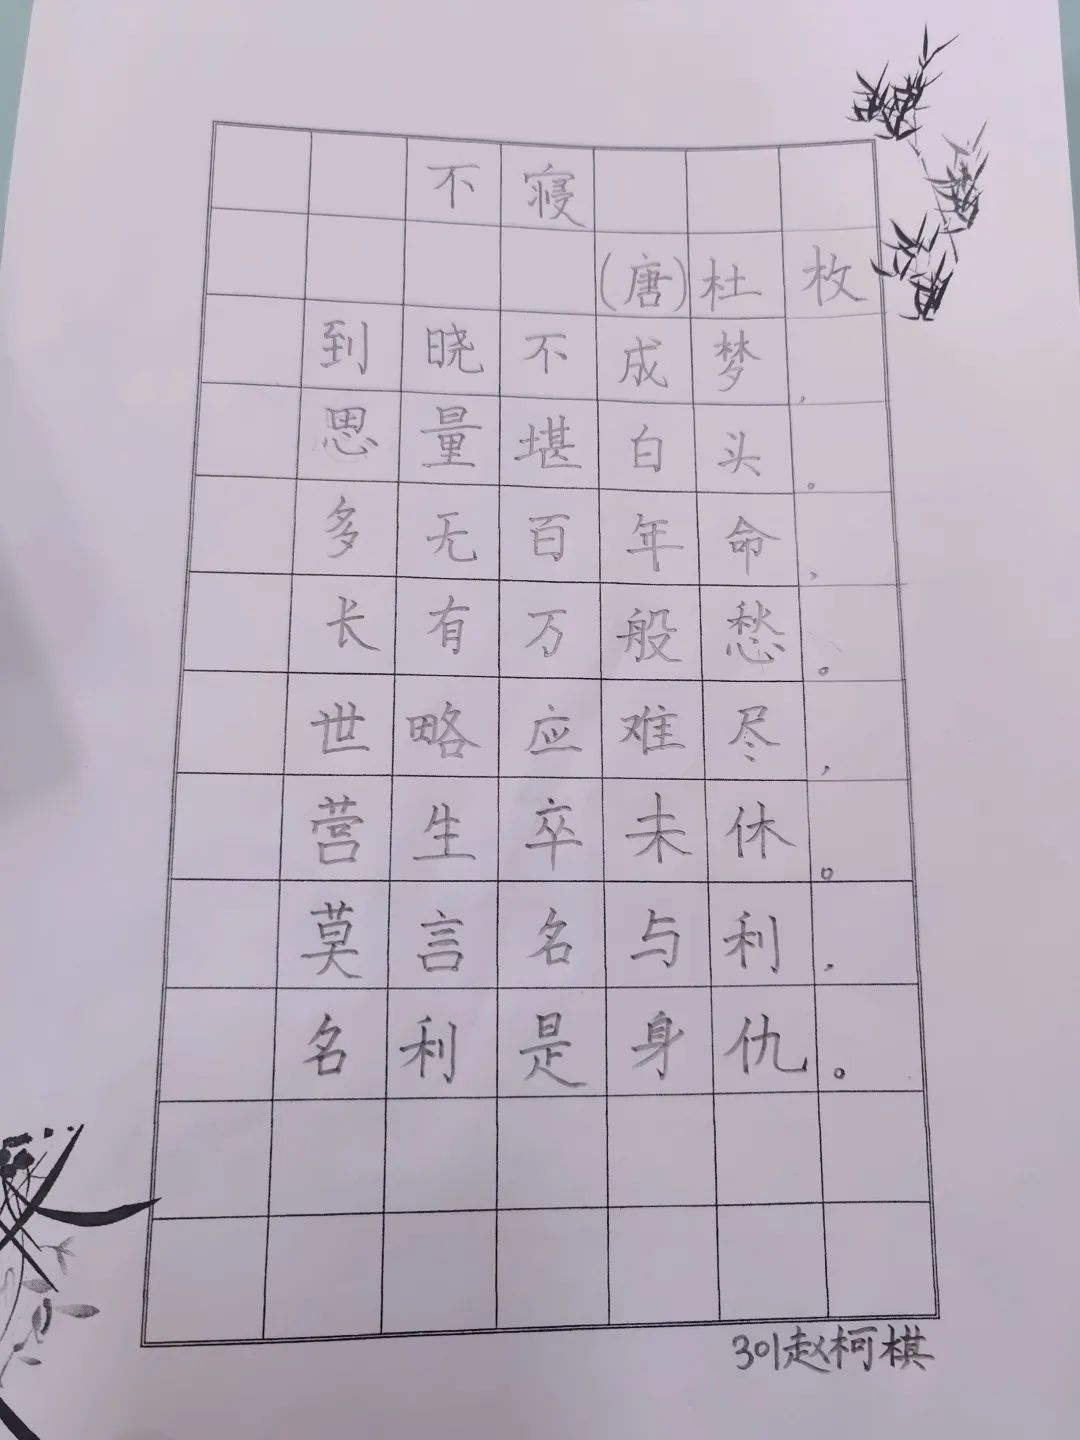 不寝
(唐)杜枚
到晓不成梦,
思量堪白头。
多无百年命,
长有万般愁。
世略应难尽,
营生卒未休。
莫言名与利,
名利是身仇。
301赵柯棋